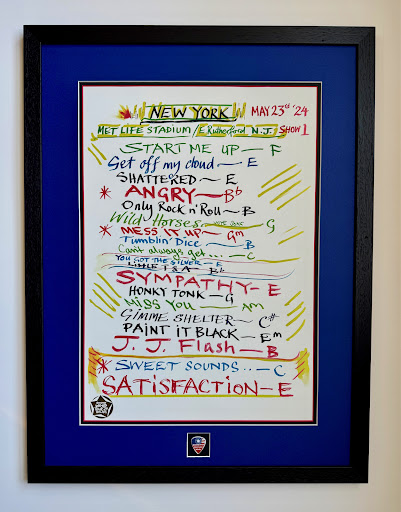 NEW YORK MAY 23RD '24
MET LIFE STADIUM / E. Rutherford N.J. SHOW 1
START ME UP — F
Get off my cloud — E
SHATTERED — E
* ANGRY — Bb
Only Rock n' Roll — B
Wild Horses. G
* MESS IT UP — Gm
Tumblin' Dice — B
Can't always get... — C
YOU GOT THE SILVER — E
LITTLE T & A — Bb
SYMPATHY — E
HONKY TONK — G
MISS YOU — AM
GIMME SHELTER — C#
PAINT IT BLACK — Em
J. J. Flash — B
* SWEET SOUNDS.. — C
SATISFACTION — E